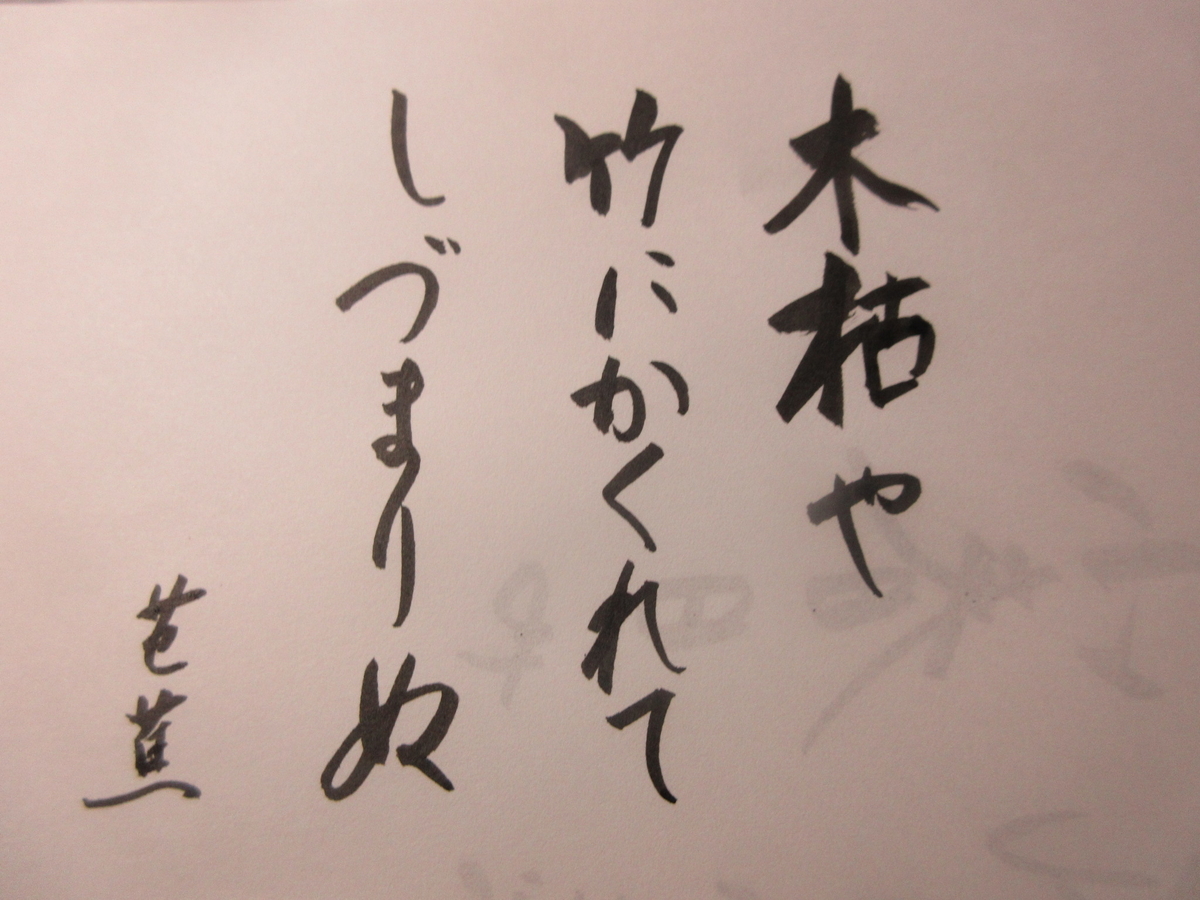 木枯や
竹にかくれて
しづまりぬ
芭蕉